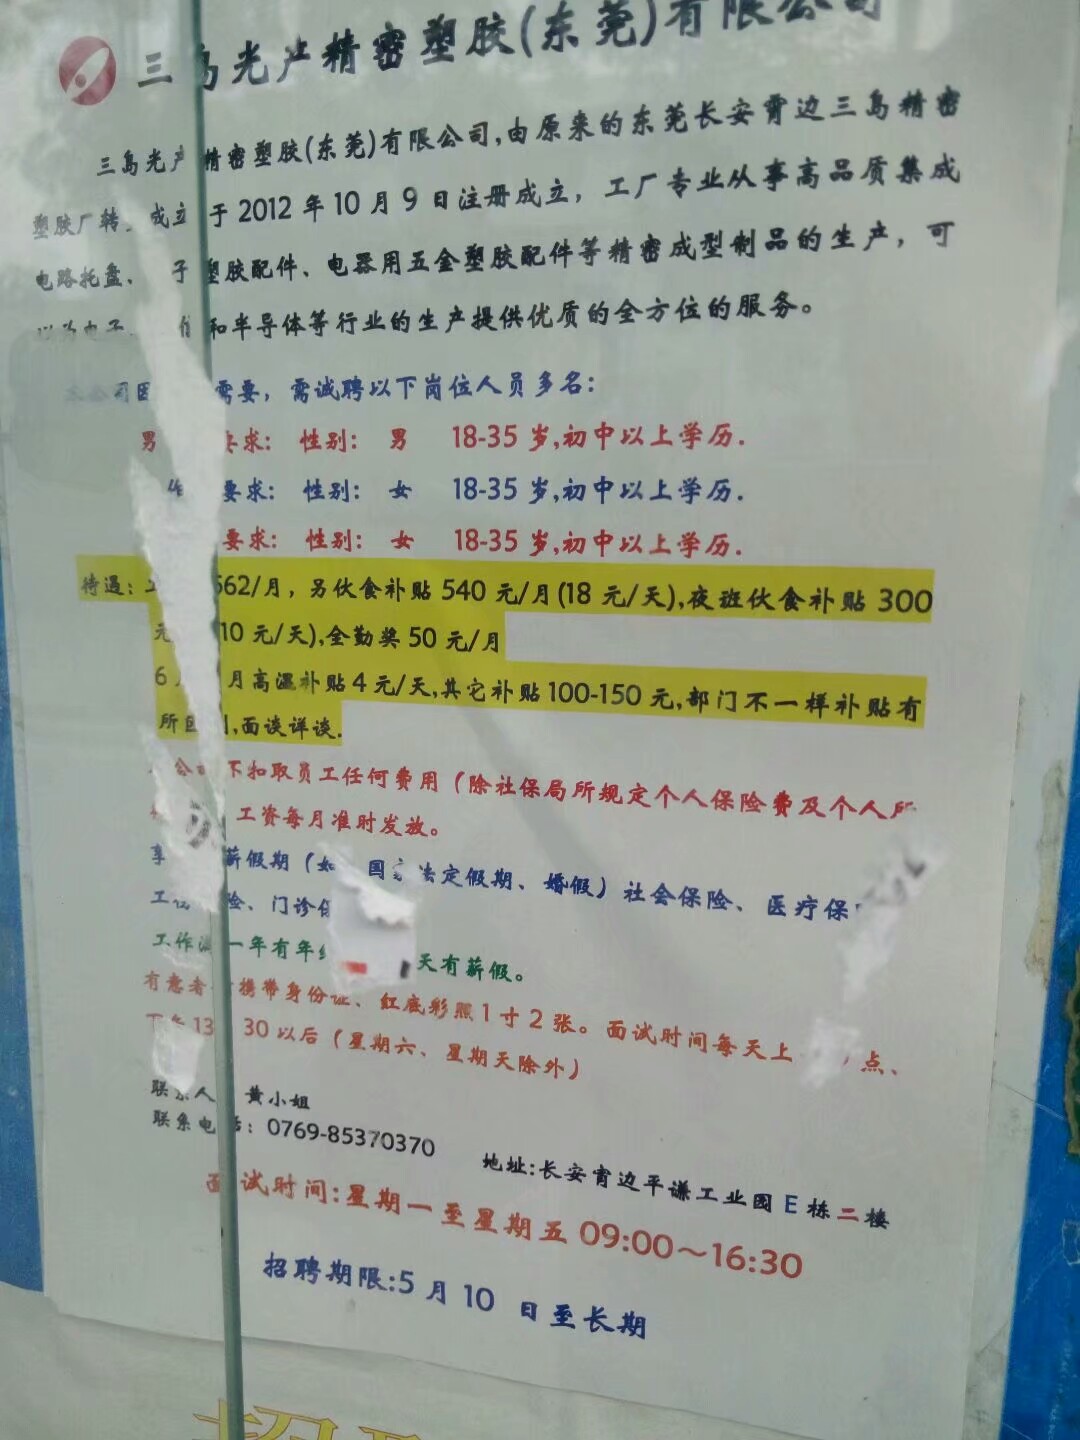 三岛光产精密塑胶(东莞)有限公司
三岛光产精密塑胶(东莞)有限公司,由原来的东莞长安霄边三岛精密
塑胶厂转 成立于2012年10月9日注册成立，工厂专业从事高品质集成
电路托盘、 子塑胶配件、电器用五金塑胶配件等精密成型制品的生产，可
以为电子、 和半导体等行业的生产提供优质的全方位的服务。
本公司因 需要，需诚聘以下岗位人员多名：
男 要求： 性别： 男 18-35岁,初中以上学历.
作 要求： 性别： 女 18-35岁,初中以上学历.
要求： 性别： 女 18-35岁,初中以上学历.
待遇： 562/月，另伙食补贴540元/月(18元/天),夜班伙食补贴300
元 10元/天),全勤奖50元/月
6月 月高温补贴4元/天,其它补贴100-150元,部门不一样补贴有
所区别,面谈详谈.
公司不扣取员工任何费用（除社保局所规定个人保险费及个人所
工资每月准时发放。
享 薪假期（如 国家法定假期、婚假）社会保险、医疗保
工 险、门诊保
工作满一年有年 天有薪假。
有意者 携带身份证、红底彩照1寸2张。面试时间每天上 点、
下午13 30以后（星期六、星期天除外）
联系人 黄小姐
联系电话：0769-85370370
地址:长安霄边平谦工业园E栋二楼
面试时间:星期一至星期五09:00～16:30
招聘期限:5月10日至长期
招